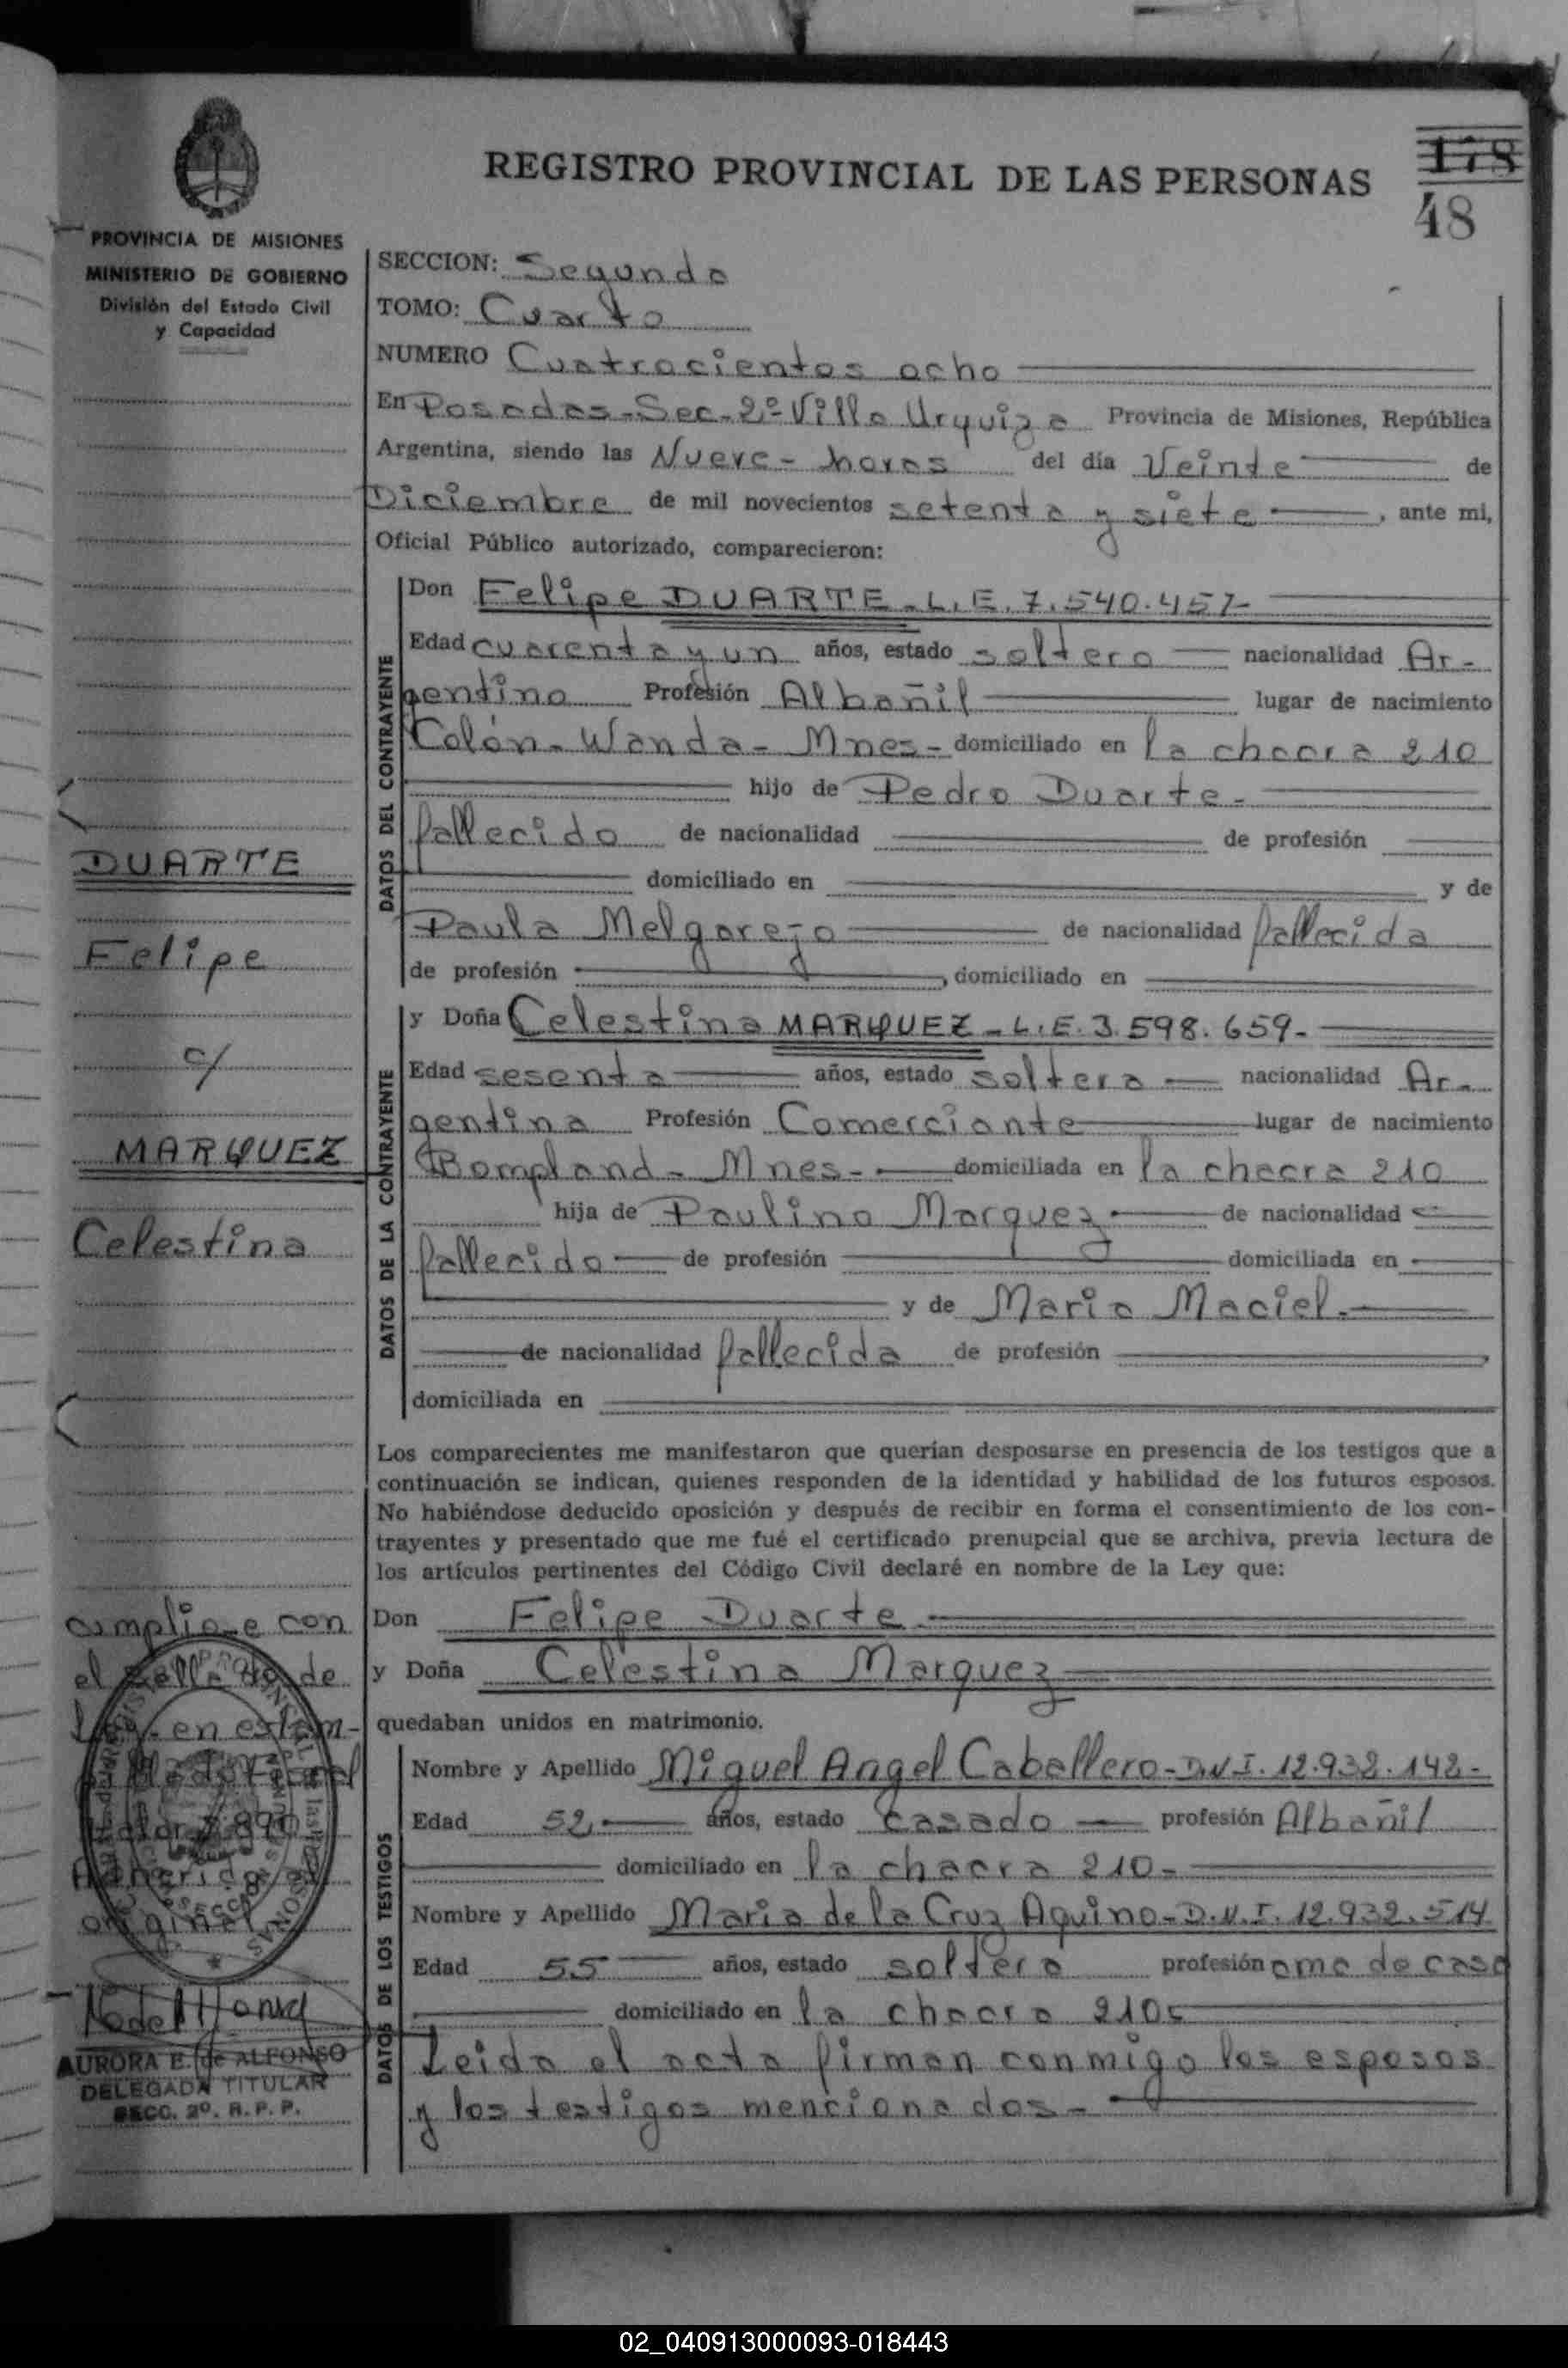 REGISTRO PROVINCIAL DE LAS PERSONAS
178
48
PROVINCIA DE MISIONES
MINISTERIO DE GOBIERNO
División del Estado Civil
y Capacidad
SECCION: Segunda
TOMO: Cuarto
NUMERO Cuatrocientos ocho
En Posadas-Sec-2º-Villa Urquiza Provincia de Misiones, República
Argentina, siendo las Nueve- horas del día Veinte de
Diciembre de mil novecientos setenta y siete, ante mi,
Oficial Público autorizado, comparecieron:
DATOS DEL CONTRAYENTE
Don Felipe DUARTE-L.E.7.540.457-
Edad cuarenta y un años, estado soltero nacionalidad Ar-
gentino Profesión Albañil lugar de nacimiento
Colón-Wanda-Mnes- domiciliado en la chacra 210
hijo de Pedro Duarte-
fallecido de nacionalidad de profesión
domiciliado en y de
Paula Melgarejo de nacionalidad fallecida
de profesión , domiciliado en
DATOS DE LA CONTRAYENTE
y Doña Celestina MARQUEZ-L.E.3.598.659-
Edad sesenta años, estado soltera nacionalidad Ar-
gentina Profesión Comerciante lugar de nacimiento
Bompland-Mnes- domiciliada en la chacra 210
hija de Paulino Marquez de nacionalidad
fallecido de profesión domiciliada en
y de Maria Maciel.
de nacionalidad fallecida de profesión
domiciliada en
Los comparecientes me manifestaron que querían desposarse en presencia de los testigos que a
continuación se indican, quienes responden de la identidad y habilidad de los futuros esposos.
No habiéndose deducido oposición y después de recibir en forma el consentimiento de los con-
trayentes y presentado que me fué el certificado prenupcial que se archiva, previa lectura de
los artículos pertinentes del Código Civil declaré en nombre de la Ley que:
Don Felipe Duarte
y Doña Celestina Marquez
quedaban unidos en matrimonio.
DATOS DE LOS TESTIGOS
Nombre y Apellido Miguel Angel Caballero-D.N.I.12.932.142-
Edad 52 años, estado casado profesión Albañil
domiciliado en la chacra 210-
Nombre y Apellido Maria de la Cruz Aquino-D.N.I.12.932.514
Edad 55 años, estado soltera profesión ama de casa
domiciliado en la chacra 210
Leida el acta firman conmigo los esposos
y los testigos mencionados-
DUARTE
Felipe
c/
MARQUEZ
Celestina
con
el sellado de
Ley en estam-
valor $ 890
Adherido al
original
AURORA E. de ALFONSO
DELEGADA TITULAR
SECC. 2º. R. P. P.
02_040913000093-018443